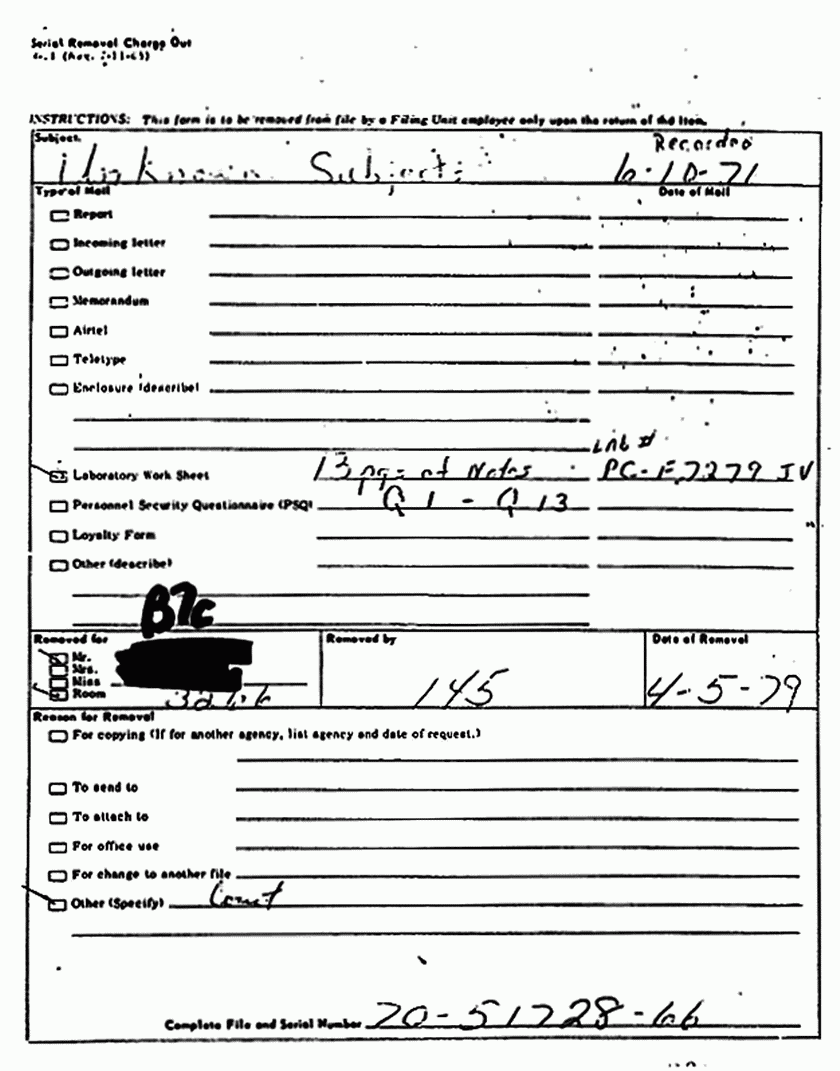 Serial Removal Charge Out
INSTRUCTIONS: This form is to be removed from file by a Filing Unit employee only upon the return of the item.
Subject.
Recorded
Unknown Subjects
6-10-71
Type of Mail
Date of Mail
Report
Incoming letter
Outgoing letter
Memorandum
Airtel
Teletype
Enclosure (describe)
Lab #
Laboratory Work Sheet 13 pgs of Notes PC-F7279 IV
Personnel Security Questionnaire (PSQ) Q1 - Q13
Loyalty Form
Other (describe)
B7c
Removed for
Removed by
Date of Removal
Mr.
Mrs.
Miss
Room
145
4-5-79
Reason for Removal
For copying (If for another agency, list agency and date of request.)
To send to
To attach to
For office use
For change to another file
Other (Specify) Court
Complete File and Serial Number 70-51728-66